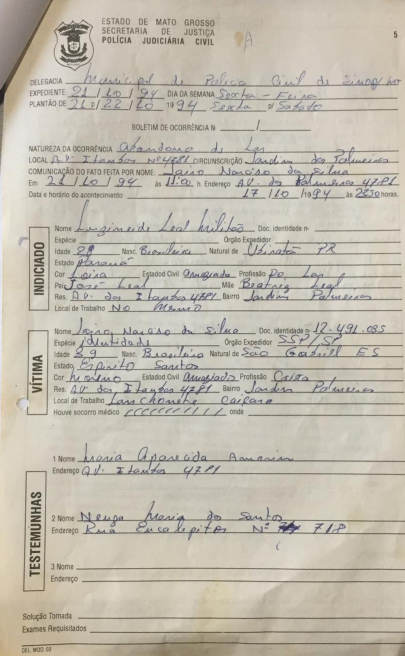 ESTADO DE MATO GROSSO
SECRETARIA DE JUSTIÇA
POLÍCIA JUDICIÁRIA CIVIL
A
5
DELEGACIA Municipal de Polícia Civil de Sinop/
EXPEDIENTE 21 / 10 / 94 DIA DA SEMANA Sexta - Feira
PLANTÃO DE 21 a 22 / 10 1994 Sexta Sabado
BOLETIM DE OCORRÊNCIA Nº /
NATUREZA DA OCORRÊNCIA Abandono de Lar
LOCAL AV. Itaubas Nº 4781 CIRCUNSCRIÇÃO Jardim das Palmeiras
COMUNICAÇÃO DO FATO FEITA POR NOME Jairo Narciso da Silua
Em 21 / 10 / 94 às 11:00 h. Endereço AV. das 4781
Data e horário do acontecimento 17 / 10 / 1994 às horas.
INDICIADO
Nome Leal Doc. identidade nº
Espécie Órgão Expedidor
Idade Nasc. Brasileira Natural de PR
Estado Paraná
Cor Loira Estadod Civil Amaziada Profissão Do Lar
Pai José Leal Mãe Beatriz Leal
Res. AV. das Itaubas 4781 Bairro Jardim Palmeiras
Local de Trabalho No Mesmo
VÍTIMA
Nome Jairo Narciso da Silua Doc. identidade nº 12.491.035
Espécie identidade Órgão Expedidor SSP/SP
Idade 39 Nasc. Brasileiro Natural de São Gabriel ES
Estado Espirito Santos
Cor Moreno Estadod Civil Amaziado Profissão
Res. AV. das Itaubas 4781 Bairro Jardim Palmeiras
Local de Trabalho Lanchonete Caiçara
Houve socorro médico onde
TESTEMUNHAS
1 Nome Maria Aparecida Amorim
Endereço AV. Itaubas 4781
2 Nome Neuza Maria dos Santos
Endereço Rua Eucalepitos Nº 718
3 Nome
Endereço
Solução Tomada
Exames Requisitados
DEL. MOD. 03